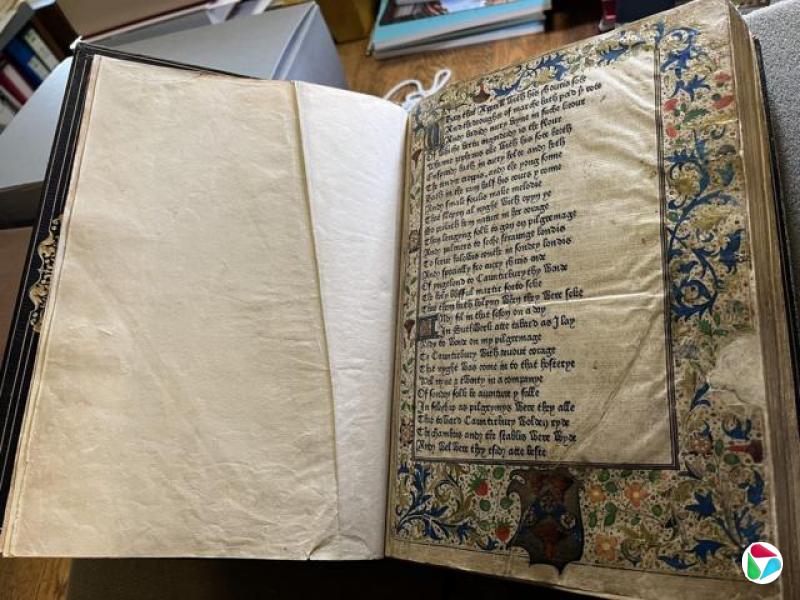 Whan that Apprill with his shouris sote
And the droughte of marche hath percid þe rote
And badid euery veyne in suche licour
Of whiche vertu engendrid is the flour
Whanne zepherus eke with his sote breth
Enspirid hath in euery holte and heth
The tendir croppis, and the yong sonne
Hath in the ram half his cours y ronne
And smale foulis make melodie
That slepyn al nyght with opyn ye
So prikith hem nature in her corage
Than longyng folk to gon on pilgremage
And palmers to seche straunge londis
To serue halowis couthe in sondry londis
And specially fro euery shiris ende
Of yngelond to Cauntirbury thy wende
The holy blisful martir forto seke
That them hath holpyn when they were seke
And fil in that seson on a day
In Suthwerk atte tabard as I lay
Redy to wende on my pilgremage
To Cauntirbury with deuout corage
That nyght was come in to that hosterye
Wel nyne & twenty in a companye
Of sondry folk be auenture y falle
In feleship as pilgrymys were they alle
That toward Cauntirbury wolden ryde
The chambres and the stablis were wyde
And wel were they esid atte beste